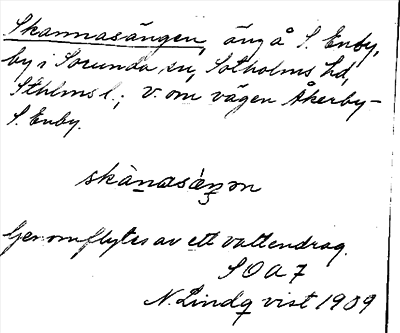 Skannasängen, äng å S. Enby,
by i Sorunda sn, Sotholms hd,
Sthlms l.; v. om vägen Åkerby-
S. Enby.
skànasǽŋon
Genomflytes av ett vattendrag.
SOA 7
N. Lindqvist 1909